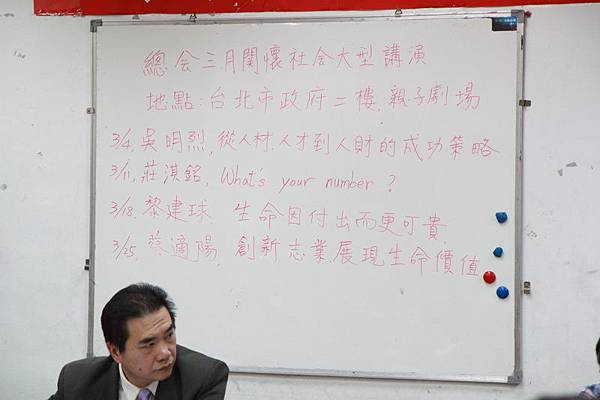 總会三月関懷社会大型講演
地點:台北市政府二樓.親子劇場
3/4.吳明烈,從人材.人才到人財的成功策略
3/11,莊淇銘, What's your number ?
3/18.黎建球 生命因付出而更可貴.
3/25.蔡適陽, 創新志業展現生命價值